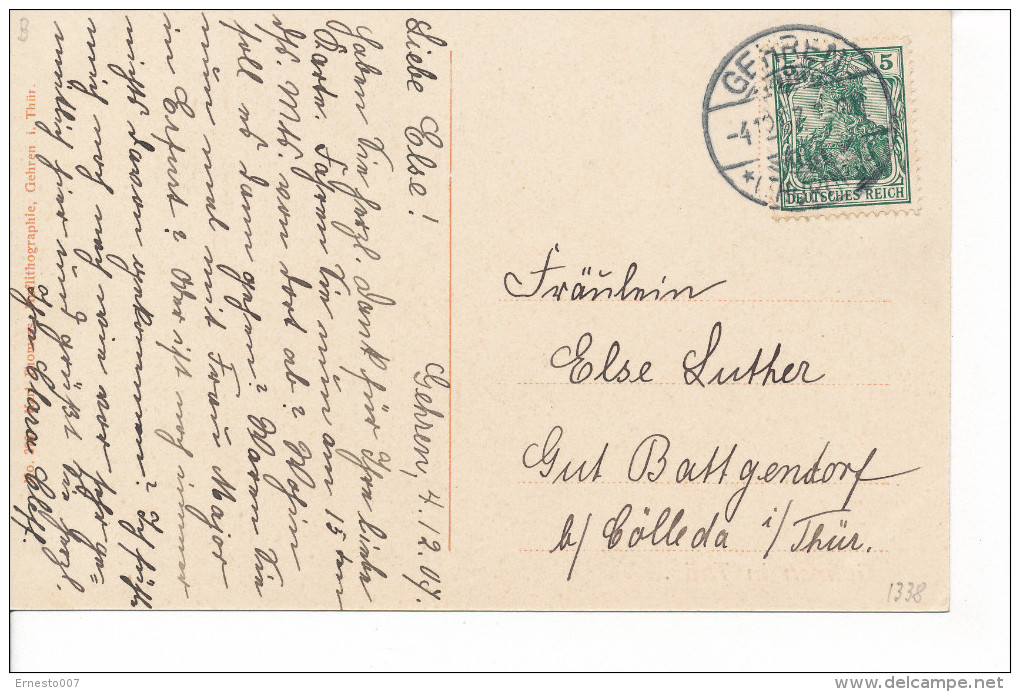 B
Liebe Else!
Gehren, 4.12.07.
Haben Sie herzl. Dank für Ihre liebe
Karte. Fahren Sie nun am 15 ten
ds. Mts. von dort ab? Wohin
soll es dann gehen? Waren Sie
nun mal mit Frau Major
in Erfurt? Oder ist noch immer
nichts davon gekommen?
mich
hier und grüßt Sie herzl.
Ihre Clara
Lichtdruck u. Photolithographie, Gehren i. Thür.
GEHREN
5
DEUTSCHES REICH
Fräulein
Else Luther
Gut Battgendorf
b/ Cölleda i/Thür.
1338
Ernesto007